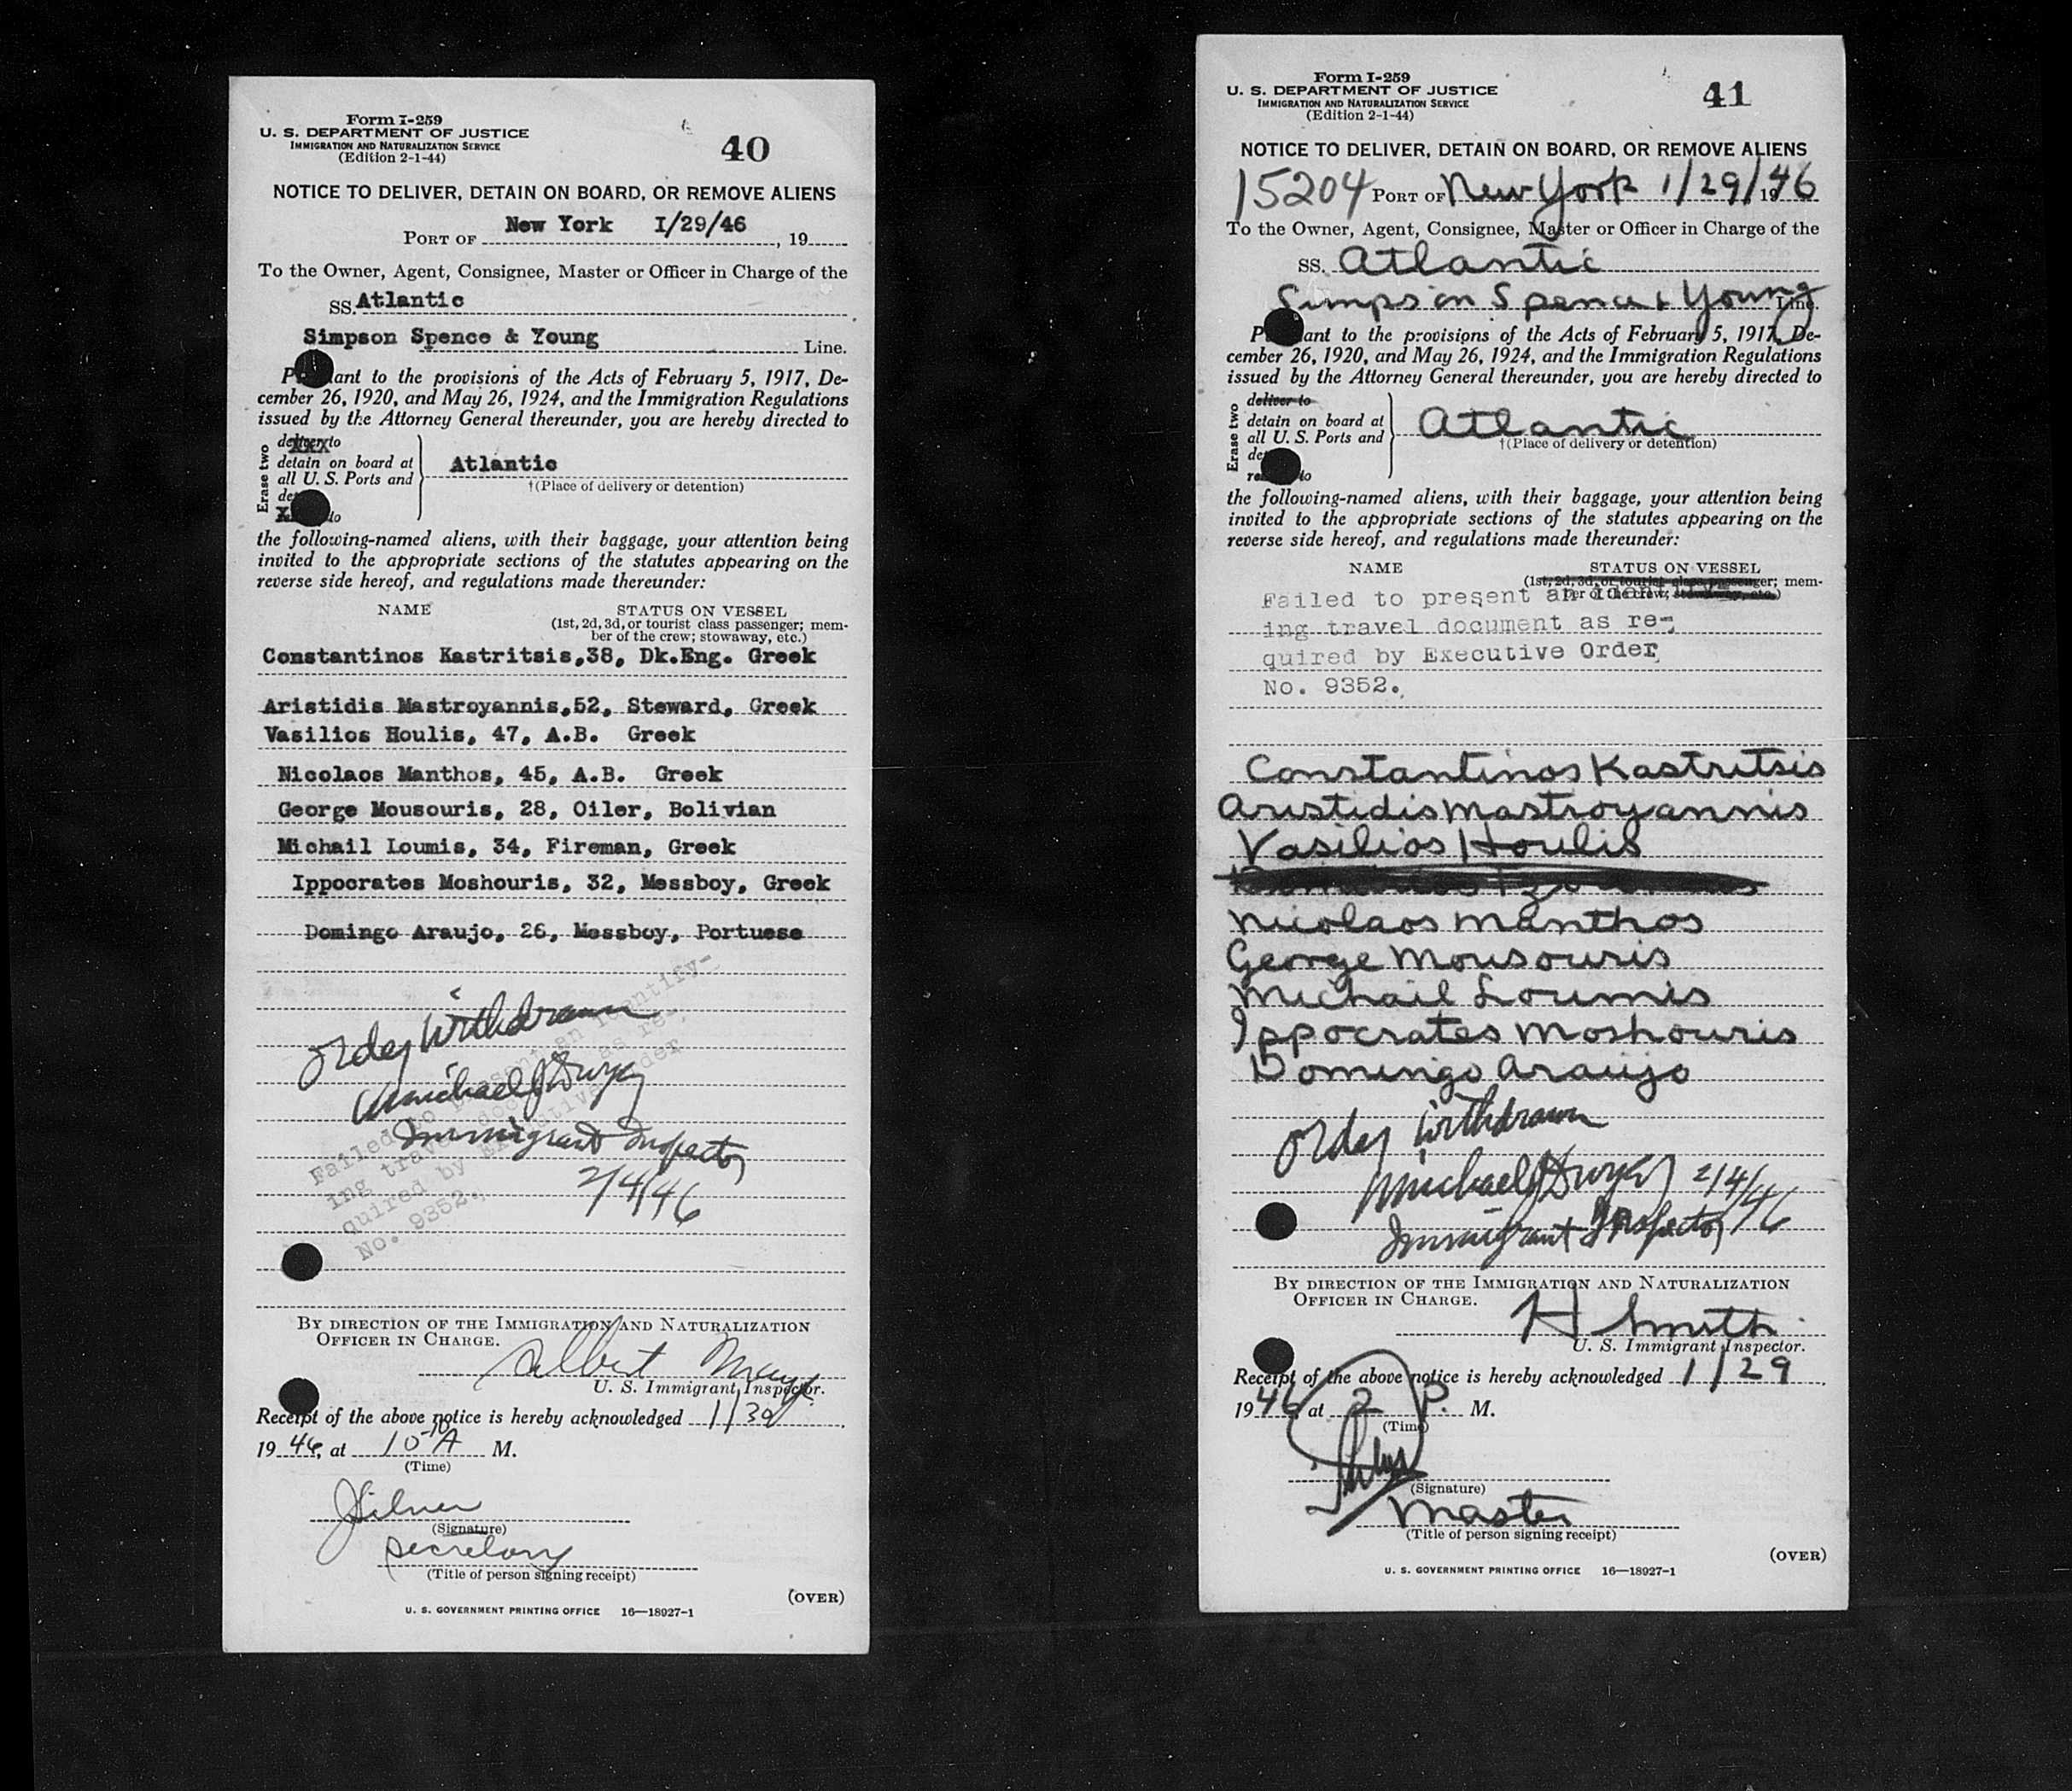 Form I-259
U. S. DEPARTMENT OF JUSTICE
IMMIGRATION AND NATURALIZATION SERVICE
(Edition 2-1-44)
40
NOTICE TO DELIVER, DETAIN ON BOARD, OR REMOVE ALIENS
PORT OF New York 1/29/46, 19
To the Owner, Agent, Consignee, Master or Officer in Charge of the
SS. Atlantic
Simpson Spence & Young Line.
ant to the provisions of the Acts of February 5, 1917, De-
cember 26, 1920, and May 26, 1924, and the Immigration Regulations
issued by the Attorney General thereunder, you are hereby directed to
Erase two
deliver to
detain on board at
all U. S. Ports and
de
to
Atlantic
†(Place of delivery or detention)
the following-named aliens, with their baggage, your attention being
invited to the appropriate sections of the statutes appearing on the
reverse side hereof, and regulations made thereunder:
NAME STATUS ON VESSEL
(1st, 2d, 3d, or tourist class passenger; mem-
ber of the crew; stowaway, etc.)
Constantinos Kastritsis,38, Dk.Eng. Greek
Aristidis Mastroyannis,52, Steward, Greek
Vasilios Houlis, 47, A.B. Greek
Nicolaos Manthos, 45, A.B. Greek
George Mousouris, 28, Oiler, Bolivian
Michail Loumis, 34, Fireman, Greek
Ippocrates Moshouris, 32, Messboy, Greek
Domingo Araujo, 26, Messboy, Portuese
Failed to present an identify-
ing travel document as re-
quired by Executive Order
No. 9352.
Order Withdrawn
Michael J Dwyer
Immigrant Inspector
2/4/46
BY DIRECTION OF THE IMMIGRATION AND NATURALIZATION
OFFICER IN CHARGE.
Albert
U. S. Immigrant Inspector.
Receipt of the above notice is hereby acknowledged 1/30,
19 46, at 10-10 A M.
(Time)
(Signature)
Secretary
(Title of person signing receipt)
(OVER)
U. S. GOVERNMENT PRINTING OFFICE 16—18927-1
Form I-259
U. S. DEPARTMENT OF JUSTICE
IMMIGRATION AND NATURALIZATION SERVICE
(Edition 2-1-44)
41
NOTICE TO DELIVER, DETAIN ON BOARD, OR REMOVE ALIENS
15204 PORT OF New York 1/29/1946
To the Owner, Agent, Consignee, Master or Officer in Charge of the
SS. Atlantic
Simpson Spence & Young Line.
ant to the provisions of the Acts of February 5, 1917, De-
cember 26, 1920, and May 26, 1924, and the Immigration Regulations
issued by the Attorney General thereunder, you are hereby directed to
Erase two
deliver to
detain on board at
all U. S. Ports and
de
re to
Atlantic
†(Place of delivery or detention)
the following-named aliens, with their baggage, your attention being
invited to the appropriate sections of the statutes appearing on the
reverse side hereof, and regulations made thereunder:
NAME STATUS ON VESSEL
(1st, 2d, 3d, or tourist class passenger; mem-
ber of the crew; stowaway, etc.)
Failed to present an identify-
ing travel document as re-
quired by Executive Order
No. 9352.
Constantinos Kastritsis
Aristidis Mastroyannis
Vasilios Houlis
Nicolaos Manthos
George Mousouris
Michail Loumis
Ippocrates Moshouris
Domingo Araujo
Order Withdrawn
Michael J Dwyer 2/4/46
Immigrant Inspector
BY DIRECTION OF THE IMMIGRATION AND NATURALIZATION
OFFICER IN CHARGE.
H Smith
U. S. Immigrant Inspector.
Receipt of the above notice is hereby acknowledged 1/29,
19 46, at 2 P. M.
(Time)
(Signature)
Master
(Title of person signing receipt)
(OVER)
U. S. GOVERNMENT PRINTING OFFICE 16—18927-1